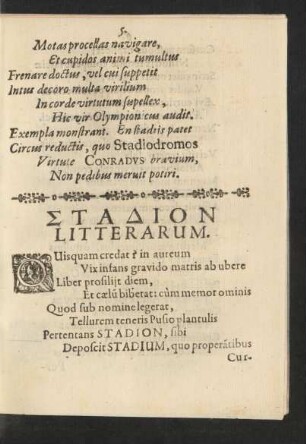 5.
Motas procellas navigare,
Et cupidos animi tumultus
Frenare doctus, vel cui suppetit
Intus decoro multa virilium
In corde virtutum supellex,
Hic vir Olympionicus audit.
Exempla monstrant. En stadiis patet
Circus reductis, quo Stadiodromos
Virtute CONRADVS bravium,
Non pedibus meruit potiri.
ΣΤΑΔΙΟΝ
LITTERARUM.
QUisquam credat? in aureum
Vix infans gravido matris ab ubere
Liber prosilijt diem,
Et cælũ biberat: cùm memor ominis
Quod sub nomine legerat,
Tellurem teneris Pusio plantulis
Pertentans STADION, sibi
Deposcit STADIUM, quo properãtibus
Cur-